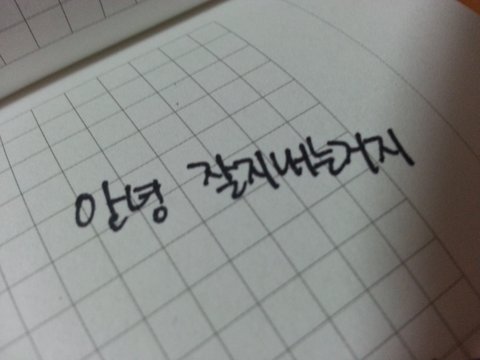 안녕 잘지내는거지